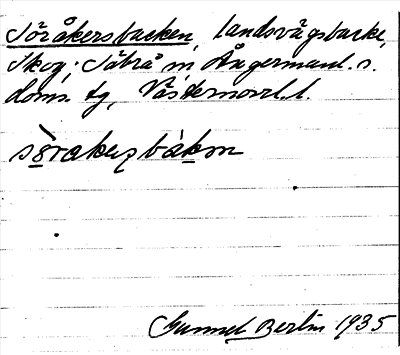 Söråkersbacken, landsvägsbacke,
Skog. Säbrå sn, Ångermanl. s.
doms. tg, Västernorrl. l.
sörakeʂbákɛn
Gunnel Berlin 1935